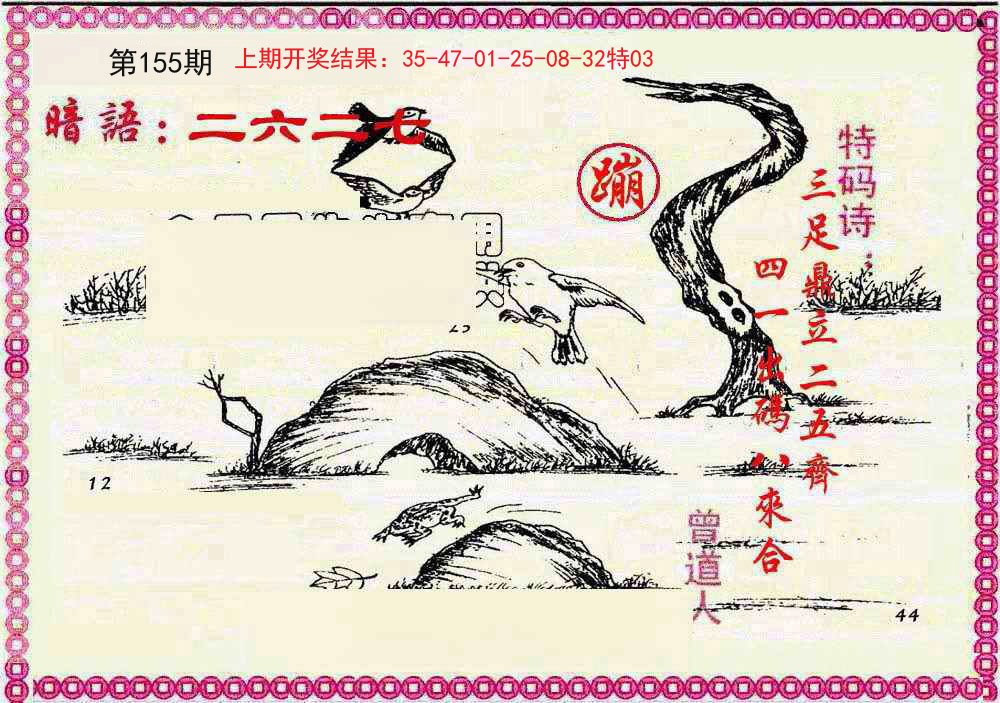 第155期
上期开奖结果：35-47-01-25-08-32特03
暗語：二六二七
蹦
特码诗：
三足鼎立二五齊
四一出碼八來合
12
曾道人
44